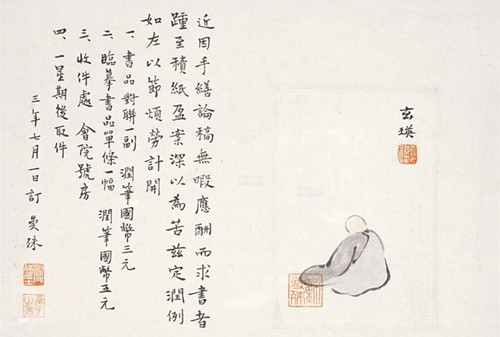 玄瑛
近因手繕論稿無暇應酬而求書者
踵至積紙盈案深以為苦茲定潤例
如左以節煩勞計開
一、書品對聯一副 潤筆國幣三元
二、臨摹書品單條一幅 潤筆國幣五元
三、收件處 會院號房
四、一星期後取件
三年七月一日訂 曼殊